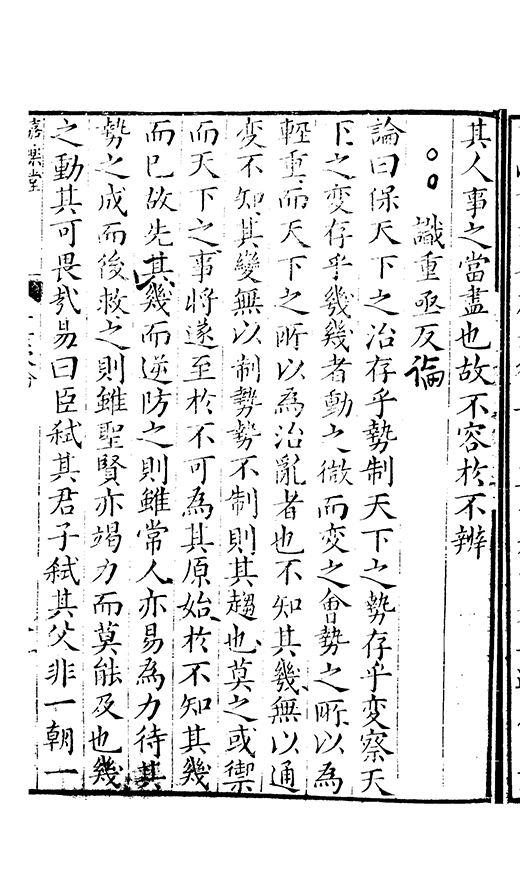 其人事之當盡也故不容於不辨
識重亟反論
論曰保天下之治存乎勢制天下之勢存乎变察天
下之变存乎幾幾者動之微而变之會勢之所以為
輕重而天下之所以為治亂者也不知其幾無以通
变不知其變無以制勢勢不制則其趨也莫之或禦
而天下之事將遂至於不可為其原始於不知其幾
而已故先其幾而逆防之則雖常人亦易為力待其
勢之成而後救之則雖聖賢亦竭力而莫能及也幾
之動其可畏哉易曰臣弑其君子弑其父非一朝一